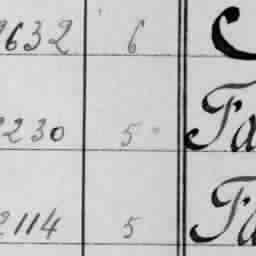 2632 6
2230 5 Fa
2114 5 Fa